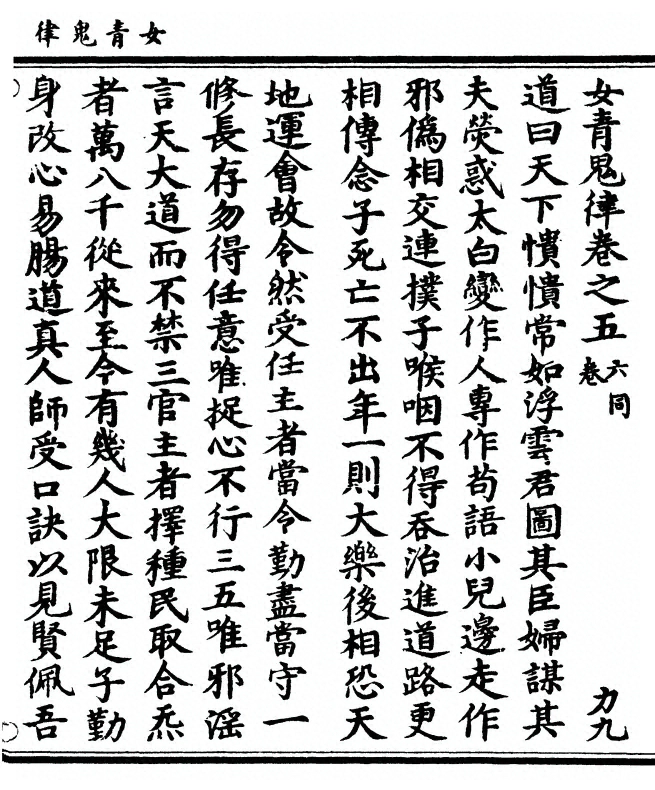 女青鬼律
女青鬼律卷之五 六同卷 力九
道曰天下憒憒常如浮雲君圖其臣婦謀其
夫熒惑太白變作人專作茍語小兒邊走作
邪僞相交連撲子喉咽不得吞治進道路更
相傳念子死亡不出年一則大樂後相恐天
地運會故令然受任主者當令勤盡當守一
修長存勿得任意唯捉心不行三五唯邪淫
言天大道而不禁三官主者擇種民取合炁
者萬八千從來至今有幾人大限未足子勤
身改心易腸道真人師受口訣以見賢佩吾